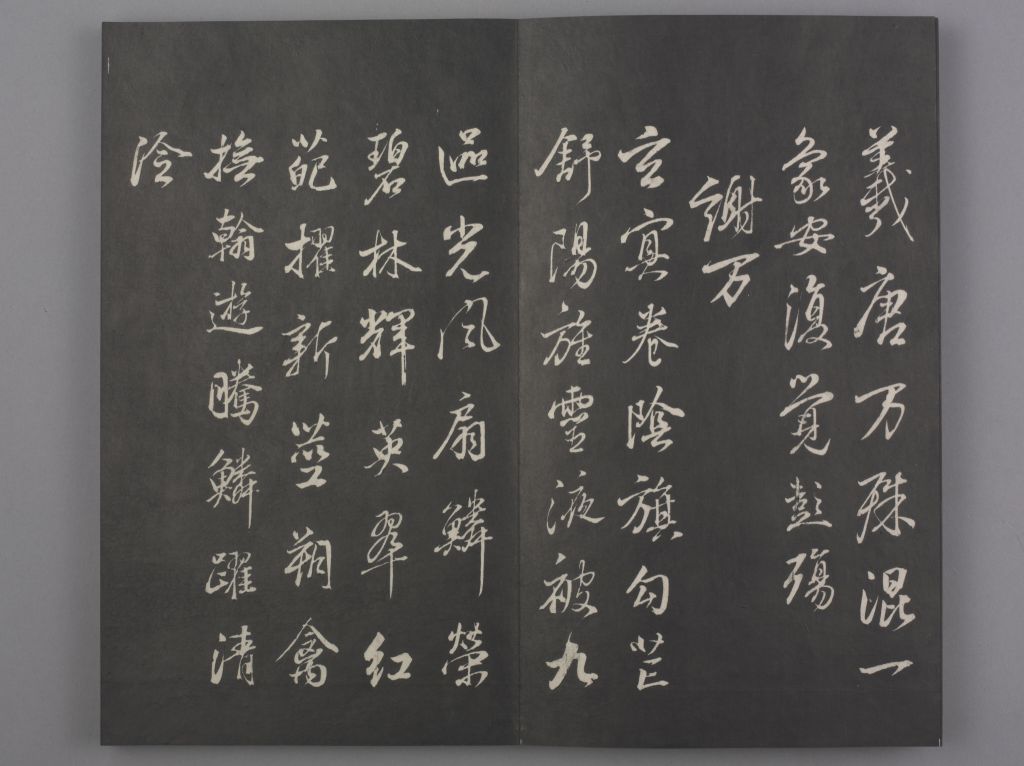 羲唐万殊混一
象安復覺彭殤
謝万
玄冥卷陰旗勾芒
舒陽旌靈液被九
區光風扇鱗榮
碧林輝英翠紅
葩擢新莖翔禽
撫翰遊騰鱗躍清
泠